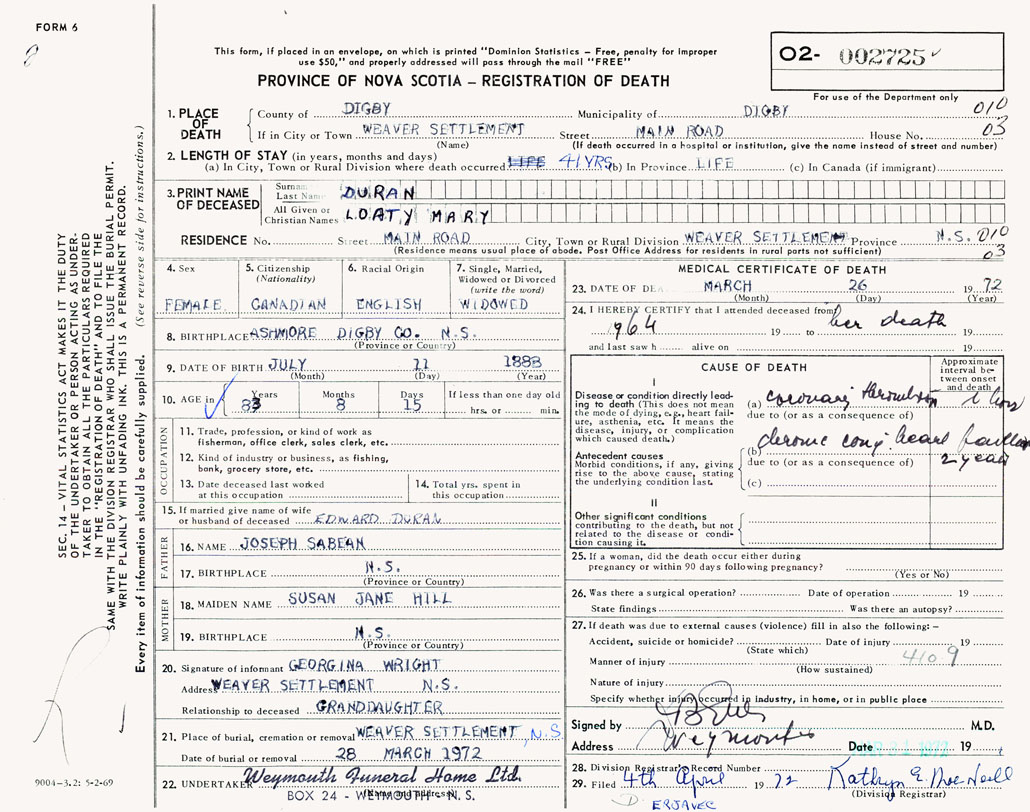 FORM 6
This form, if placed in an envelope, on which is printed "Dominion Statistics – Free, penalty for improper
use $50," and properly addressed will pass through the mail "FREE"
PROVINCE OF NOVA SCOTIA – REGISTRATION OF DEATH
02- 002725
For use of the Department only
010
03
1. PLACE OF DEATH
County of DIGBY Municipality of DIGBY
If in City or Town WEAVER SETTLEMENT Street MAIN ROAD House No.
(Name) (If death occurred in a hospital or institution, give the name instead of street and number)
2. LENGTH OF STAY (in years, months and days)
(a) In City, Town or Rural Division where death occurred LIFE 41 YRS (b) In Province LIFE (c) In Canada (if immigrant)
3. PRINT NAME OF DECEASED
Surname Last Name DURAN
All Given or Christian Names LOATY MARY
RESIDENCE No. Street MAIN ROAD City, Town or Rural Division WEAVER SETTLEMENT Province N.S. 010
(Residence means usual place of abode. Post Office Address for residents in rural parts not sufficient) 03
4. Sex
FEMALE
5. Citizenship (Nationality)
CANADIAN
6. Racial Origin
ENGLISH
7. Single, Married, Widowed or Divorced (write the word)
WIDOWED
8. BIRTHPLACE ASHMORE DIGBY CO. N.S.
(Province or Country)
9. DATE OF BIRTH JULY 11 1888
(Month) (Day) (Year)
10. AGE in Years Months Days If less than one day old
83 8 15 hrs. or min.
OCCUPATION
11. Trade, profession, or kind of work as
fisherman, office clerk, sales clerk, etc.
12. Kind of industry or business, as fishing,
bank, grocery store, etc.
13. Date deceased last worked
at this occupation
14. Total yrs. spent in
this occupation
15. If married give name of wife
or husband of deceased EDWARD DURAN
FATHER
16. NAME JOSEPH SABEAN
17. BIRTHPLACE N.S.
(Province or Country)
MOTHER
18. MAIDEN NAME SUSAN JANE HILL
19. BIRTHPLACE N.S.
(Province or Country)
20. Signature of informant GEORGINA WRIGHT
Address WEAVER SETTLEMENT N.S.
Relationship to deceased GRANDDAUGHTER
21. Place of burial, cremation or removal WEAVER SETTLEMENT, N.S.
Date of burial or removal 28 MARCH 1972
22. UNDERTAKER Weymouth Funeral Home Ltd.
BOX 24 - WEYMOUTH - N. S.
MEDICAL CERTIFICATE OF DEATH
23. DATE OF DEA MARCH 26 19 72
(Month) (Day) (Year)
24. I HEREBY CERTIFY that I attended deceased from
1964 19 to her death 19
and last saw h alive on 19
CAUSE OF DEATH
Approximate interval between onset and death
I
Disease or condition directly leading to death (This does not mean the mode of dying, e.g., heart failure, asthenia, etc. It means the disease, injury, or complication which caused death.)
(a) coronary thrombosis
due to (or as a consequence of)
Antecedent causes
Morbid conditions, if any, giving rise to the above cause, stating the underlying condition last.
(b) chronic cong. heart failure 2 years
due to (or as a consequence of)
(c)
II
Other significant conditions
contributing to the death, but not
related to the disease or condition causing it.
25. If a woman, did the death occur either during
pregnancy or within 90 days following pregnancy?
(Yes or No)
26. Was there a surgical operation? Date of operation 19
State findings Was there an autopsy?
27. If death was due to external causes (violence) fill in also the following: –
Accident, suicide or homicide? Date of injury 19
(State which)
Manner of injury 410 9
(How sustained)
Nature of injury
Specify whether injury occurred in industry, in home, or in public place
Signed by M.D.
Address Weymouth Date 1972 19
28. Division Registrar's Record Number
29. Filed 4th April 19 72
(Division Registrar)
ERJAVEC
SEC. 14 – VITAL STATISTICS ACT MAKES IT THE DUTY
OF THE UNDERTAKER OR PERSON ACTING AS UNDER-
TAKER TO OBTAIN ALL THE PARTICULARS REQUIRED
IN THE "REGISTRATION OF DEATH" AND TO FILE THE
SAME WITH THE DIVISION REGISTRAR WHO SHALL ISSUE THE BURIAL PERMIT.
WRITE PLAINLY WITH UNFADING INK. THIS IS A PERMANENT RECORD.
Every item of information should be carefully supplied. (See reverse side for instructions.)
9004-3.2: 5-2-69